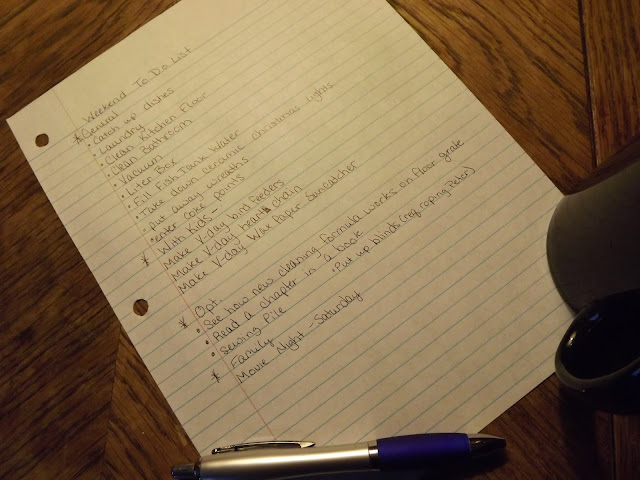 Weekend To Do List
* General
• Catch up dishes
• Laundry
• Clean Kitchen Floor
• Clean Bathroom
• Vacuum
• Liter Box
• Fill Fish Tank Water
• Take down ceramic christmas lights
• put away wreaths
• enter coke points
* With Kids -
Make V-day bird feeders
Make V-day heart chain
Make V-day Wax Paper Suncatcher
* Opt.
• See how new cleaning formula works on floor grate
• Read a chapter in a book
• Sewing Pile
• Put up blinds (ref
* Family
Movie Night - Saturday